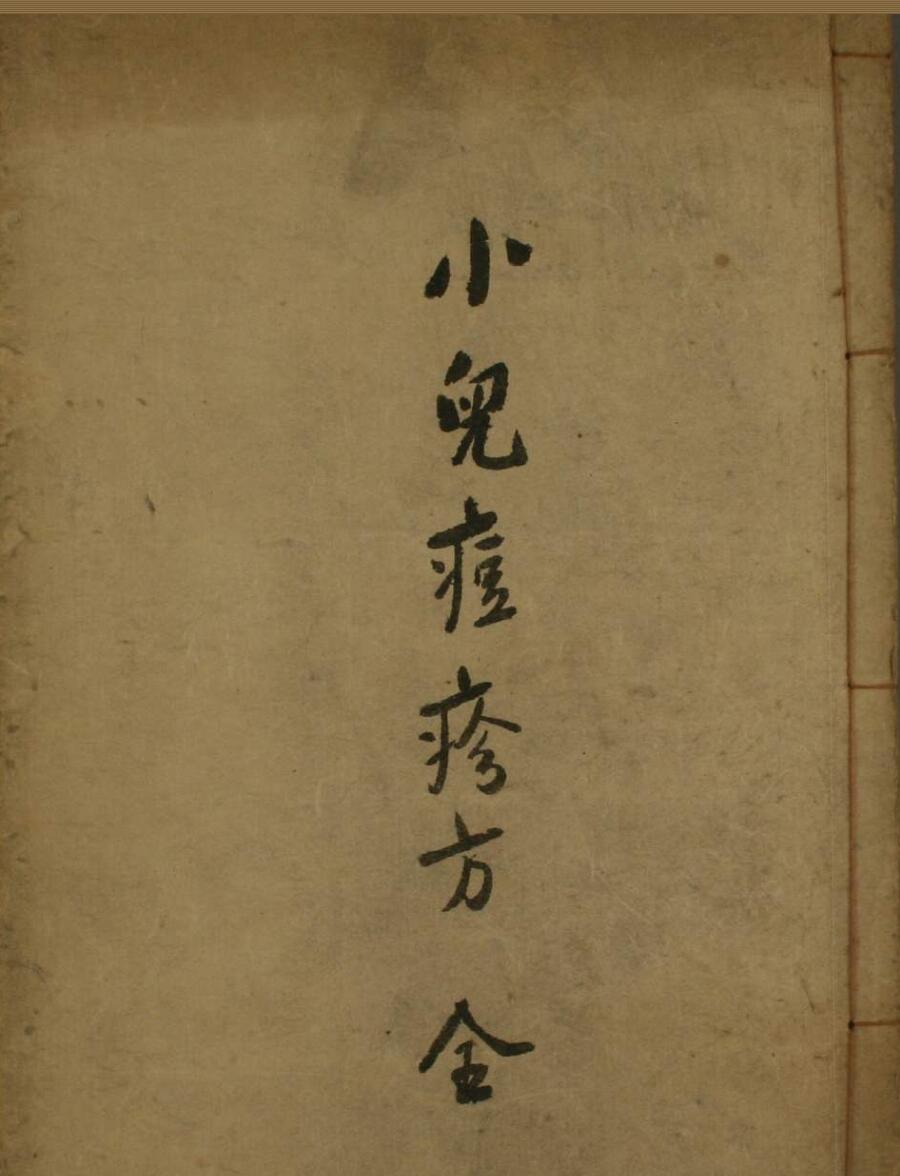 小兒痘疹方 全